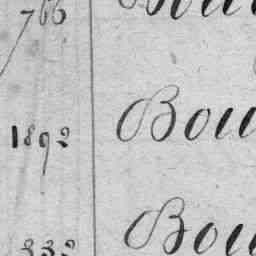 766 Bou
1892 Bou
332 Bou